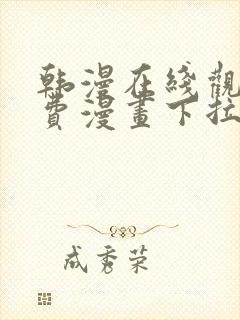 韩漫在线觀
費漫畫下拉
成秀荣